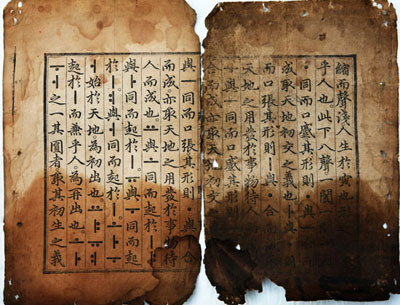 縮而聲淺人生於寅也
乎人也此下八聲一闔一
ㆍ同而口蹙其形則ㆍ與ㅡ合
成取天地初交之義也ㅏ與ㆍ
而口張其形則ㅣ與ㆍ合而成
天地之用發於事物待人
ㅜ與ㅡ同而口蹙其形則
合而成亦取天地初交之
與ㅡ同而口張其形則ㆍ與ㅣ合
而成亦取天地之用發於事物待
人而成也ㅛ與ㅗ同而起於ㅣ
ㅑ與ㅏ同而起於ㅣㅠ與ㅜ同而起
於ㅣㅕ與ㅓ同而起於ㅣㅗㅏㅜ
ㅓ始於天地爲初出也ㅛㅑㅠㅕ
起於ㅣ而兼乎人爲再出也ㅗㅏ
ㅜㅓ之一其圓者取其初生之義